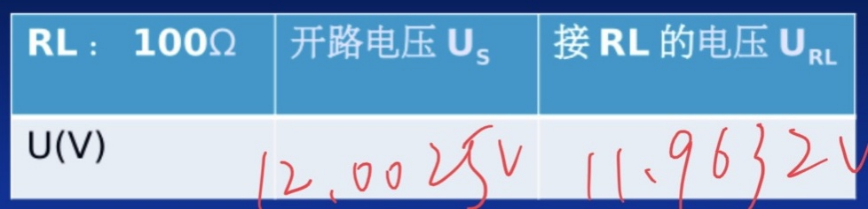 RL： 100Ω 开路电压 Us 接 RL 的电压 URL
U(V) 12.0025V 11.9632V